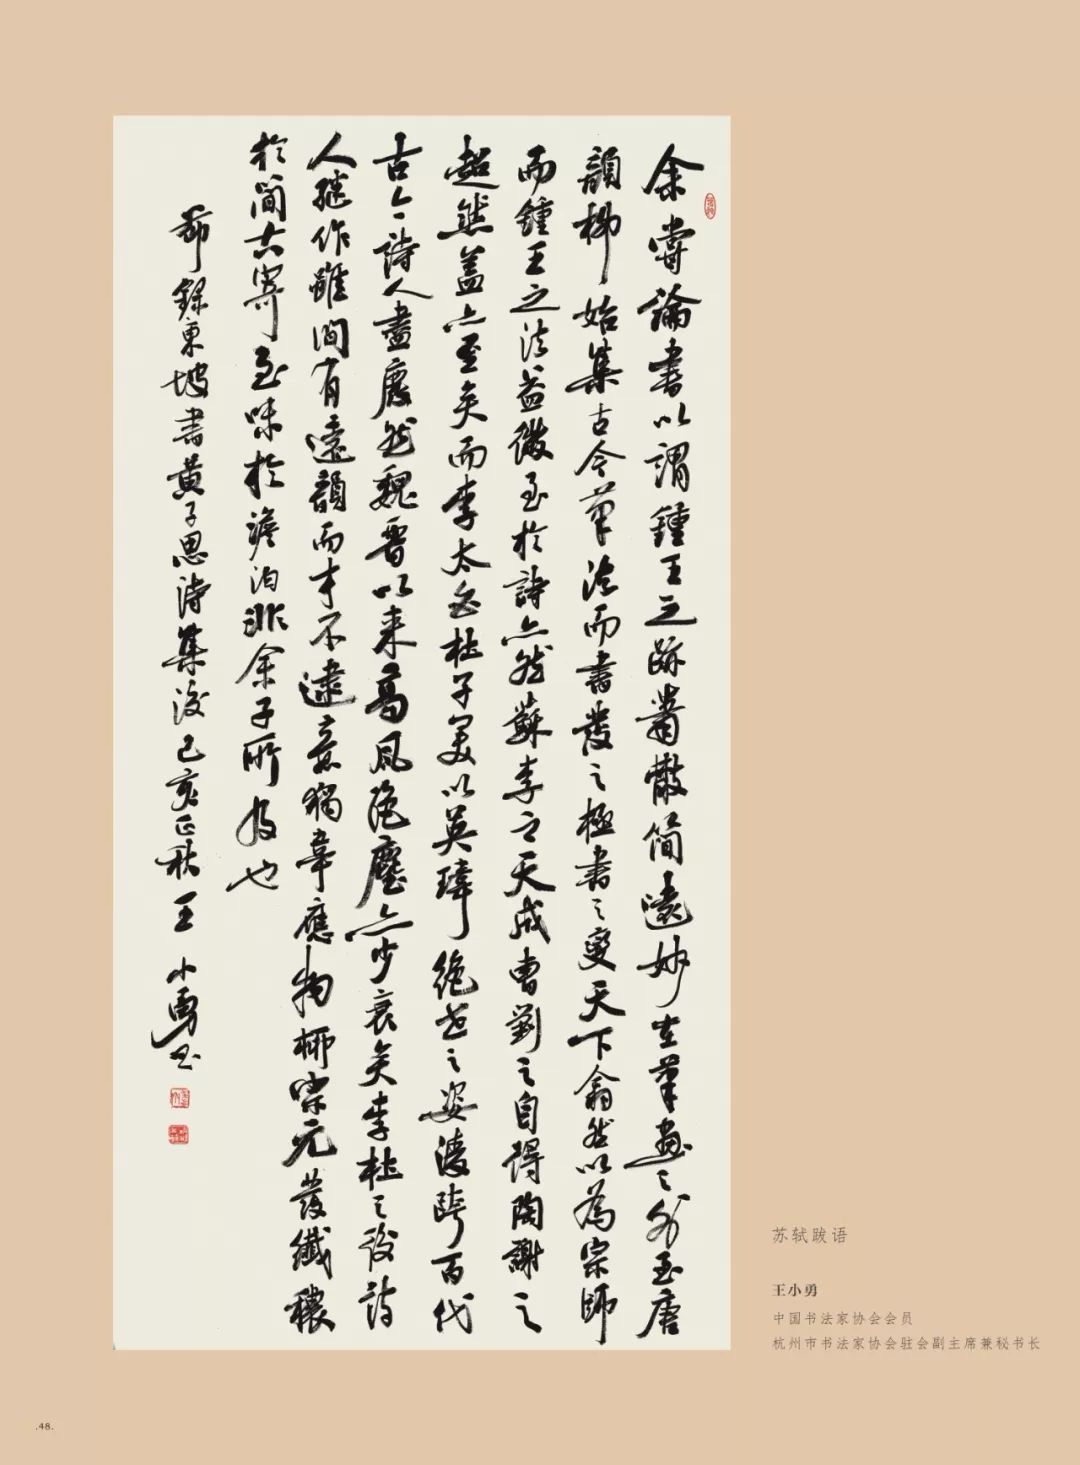 余嘗論書以謂鍾王之跡蕭散簡遠妙在筆畫之外至唐
顏柳始集古今筆法而盡發之極書之變天下翕然以為宗師
而鍾王之法益微至於詩亦然蘇李之天成曹劉之自得陶謝之
超然蓋亦至矣而李太白杜子美以英瑋絕世之姿淩跨百代
古今詩人盡廢然魏晉以來高風絕塵亦少衰矣李杜之後詩
人繼作雖間有遠韻而才不逮意獨韋應物柳宗元發纖穠
於簡古寄至味於澹泊非余子所及也
節錄東坡書黃子思詩集後己亥正秋王小勇書
苏轼跋语
王小勇
中国书法家协会会员
杭州市书法家协会驻会副主席兼秘书长
.48.